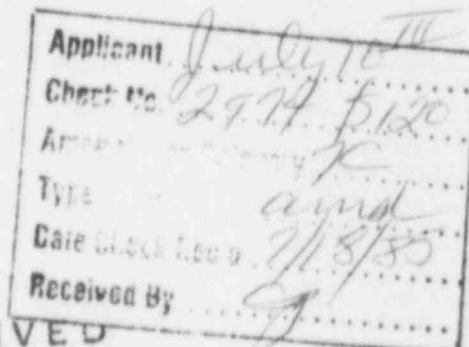 Applicant July 10 III
Check No. 2974 $120
Type amd
Date Check Rec'd 7/18/80
Received By
VED